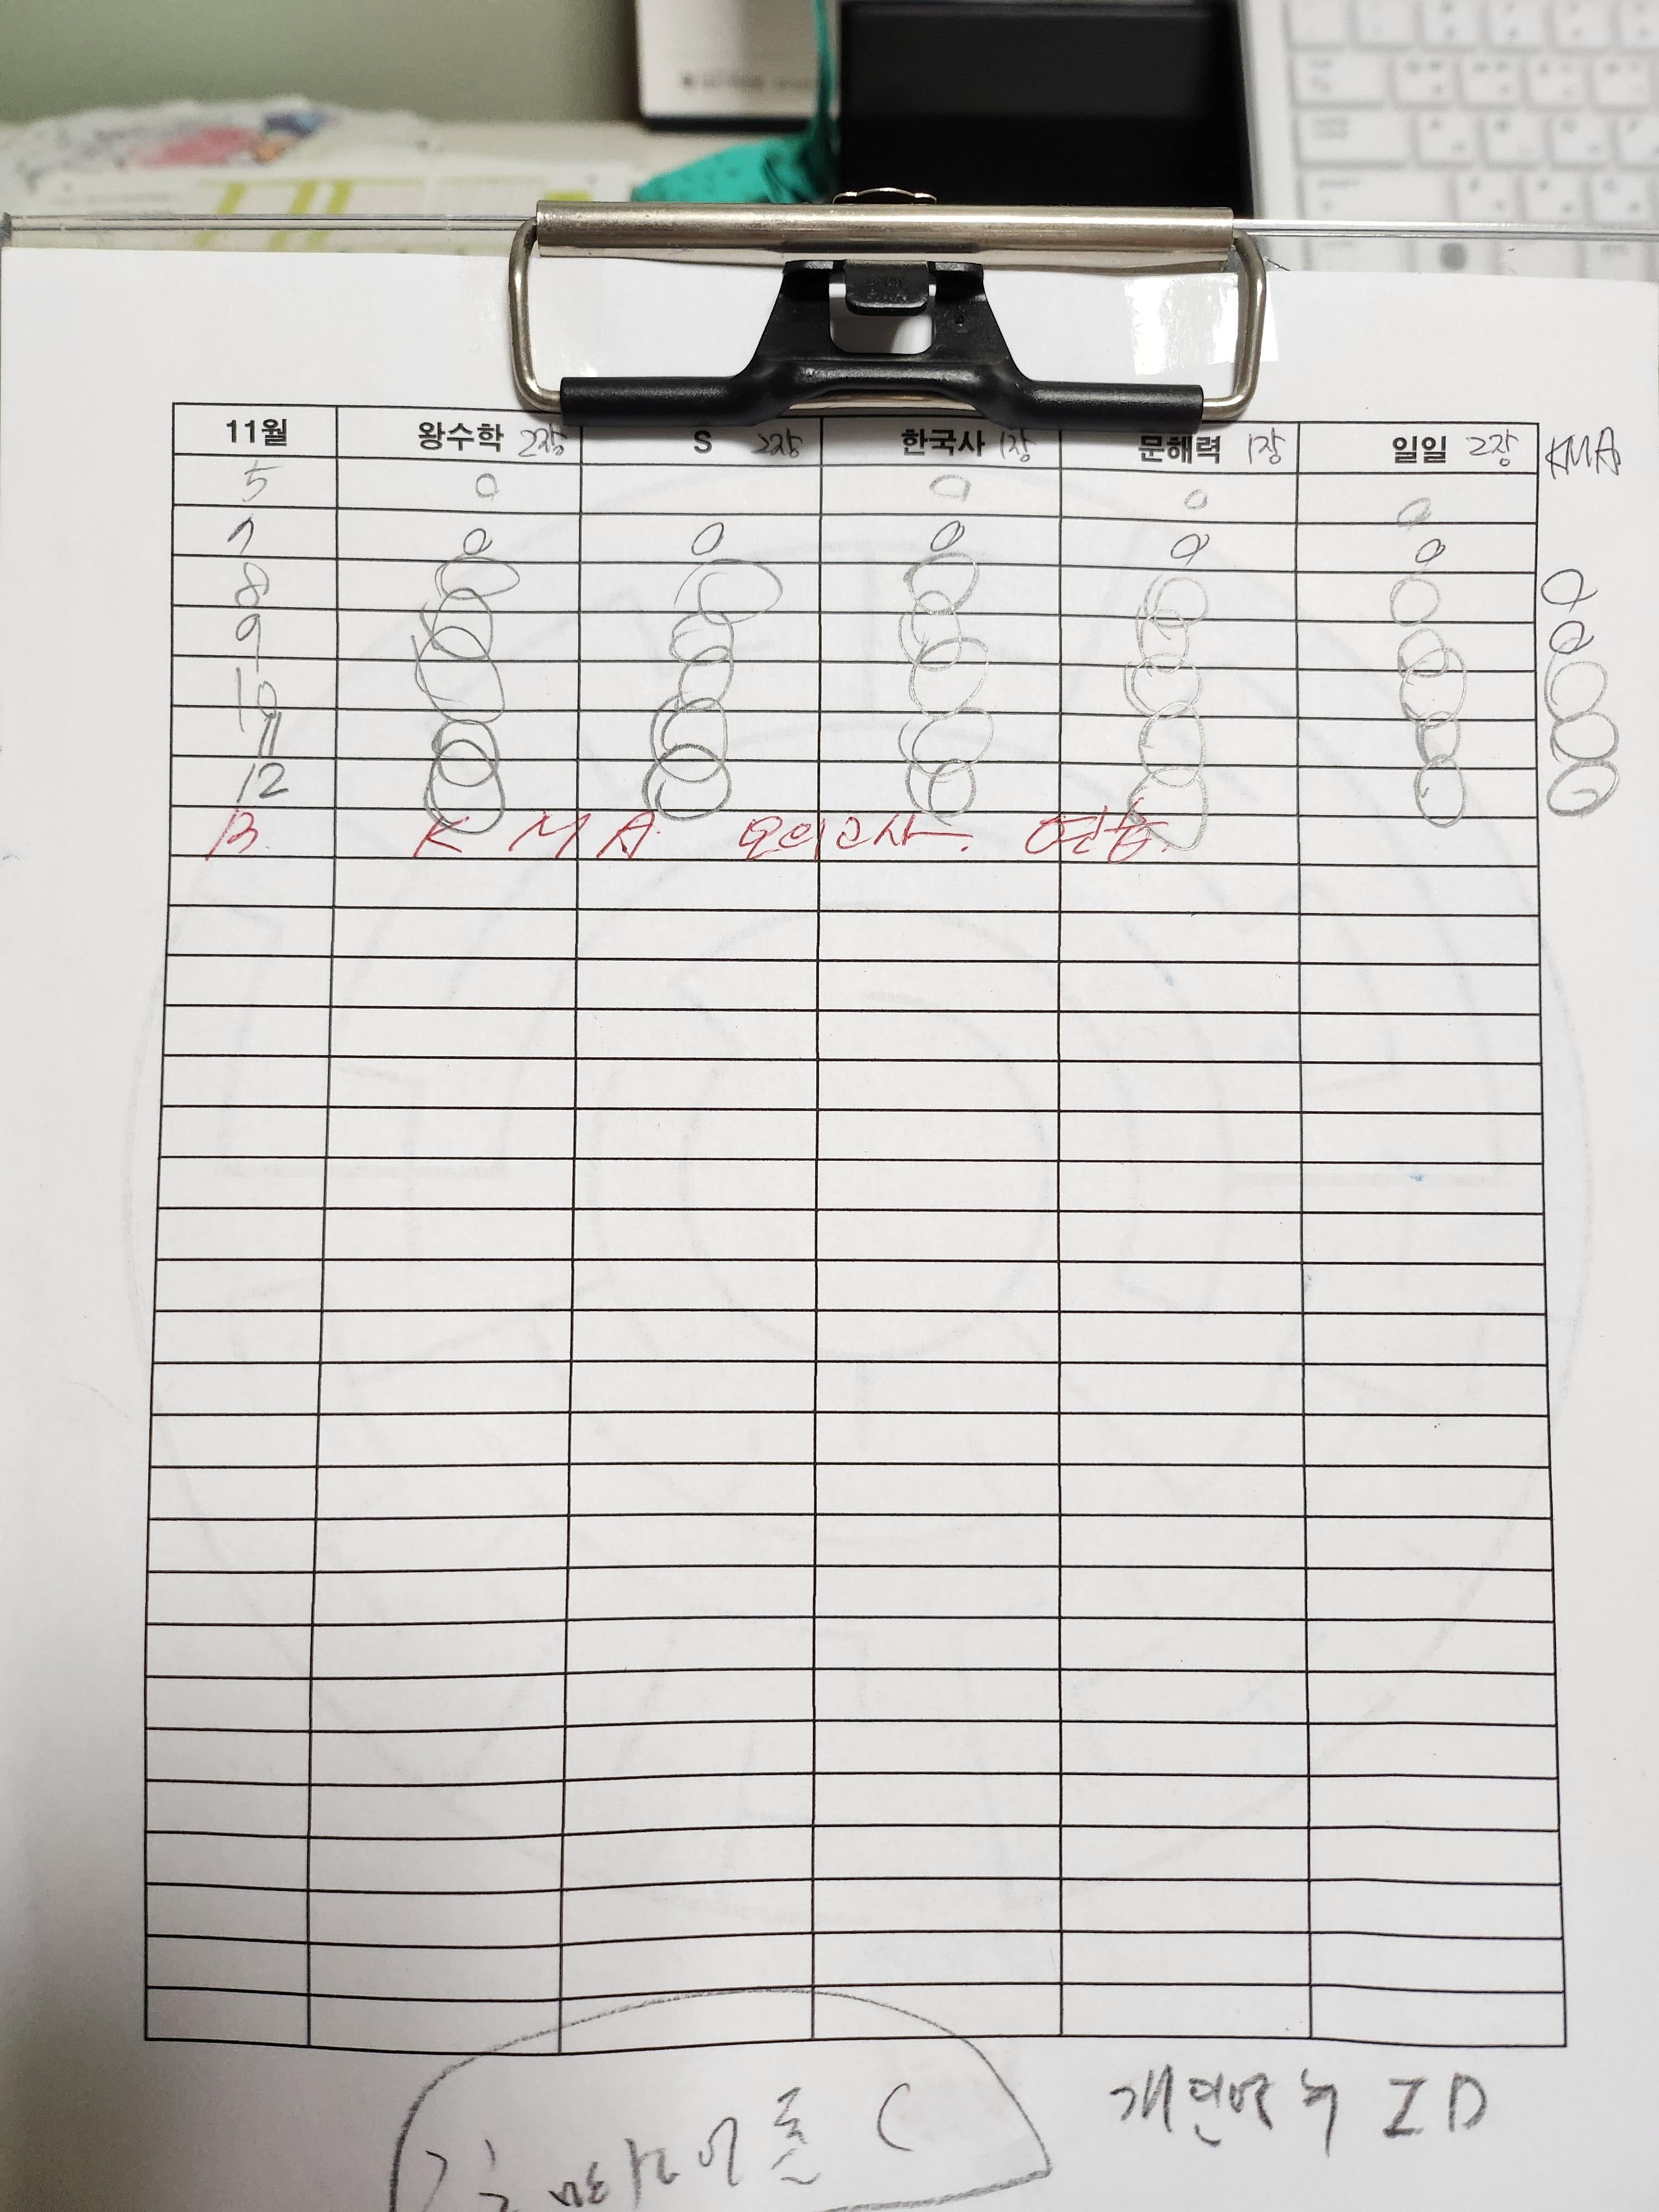 11월 왕수학 2장 S 2장 한국사 1장 문해력 1장 일일 2장 KMA
5 O O O O
7 O O O O O
8 O O O O O O
9 O O O O O O
10 O O O O O O
11 O O O O O O
12 O O O O O O
13. K M A. 모의고사. 연습.
ID